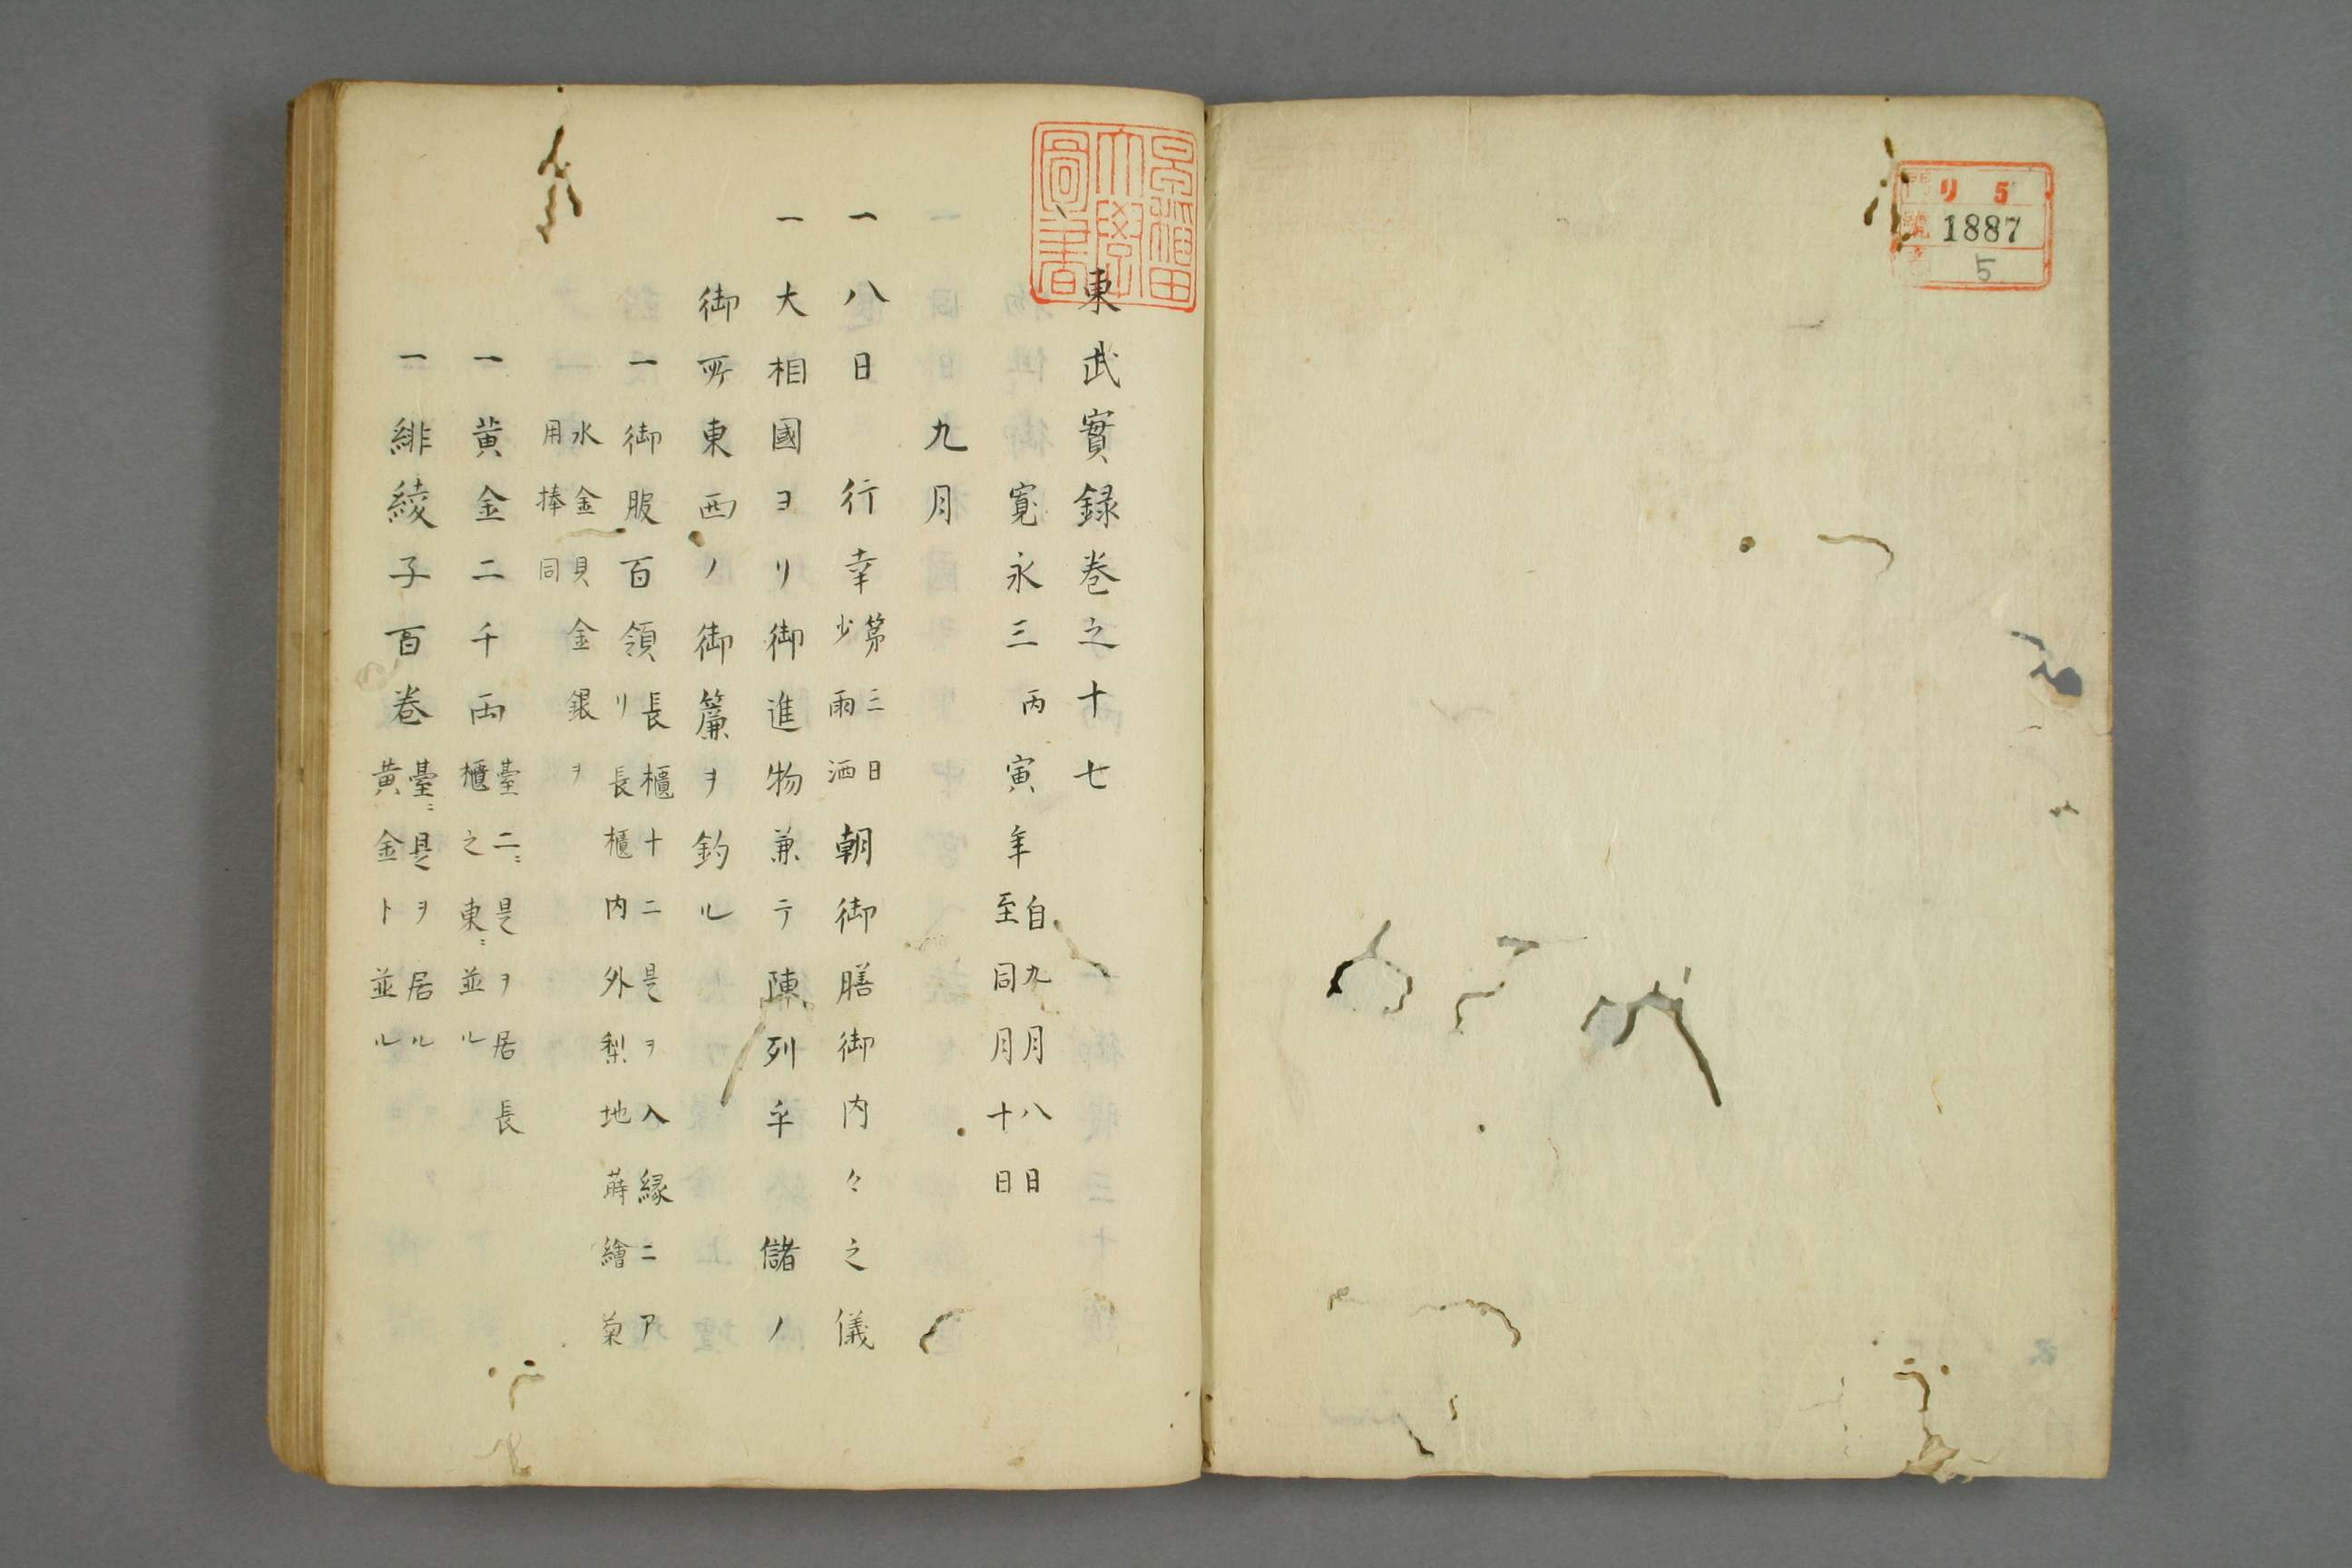 門 リ 5
號 1887
5
早稲田大學圖書
東武實録巻之十七
寛永三丙寅年自九月八日至同月十日
九月
一八日 行幸第三日少雨洒朝御膳御内々之儀
一大相國ヨリ御進物兼テ陳列乎儲ノ
御所東西ノ御簾ヲ釣ル
一御服百領長櫃十二是ヲ入縁ニアリ長櫃内外梨地蒔繪菊
水金貝金銀ヲ用捧同
一黄金二千両臺二ニ是ヲ居長櫃之東ニ並ル
一緋綾子百巻臺ニ是ヲ居ル黄金ト並ル